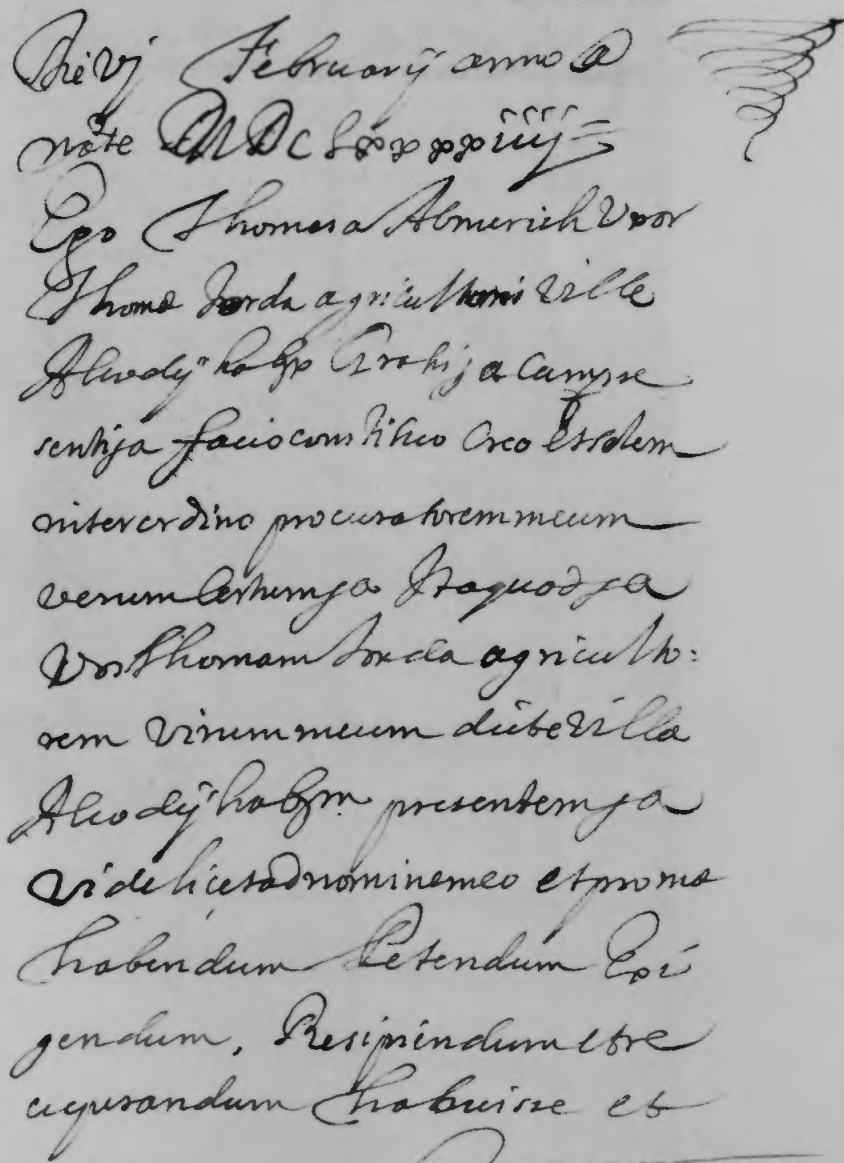 Die vj February anno a
nate MDCLxxxxiiij
Ego Thomasa Almerich Uxor
Thome Jorda agricultoris ville
Alcodÿ habx Gratis ja cum pre
sentija facio constituo Creo Et solem
niter ordino procuratorem meum
verum Certum ja Ita quod ja
Vos Thomam Jorda agriculto:
rem virum meum dicte ville
Alcodÿ habm presentem ja
Videlicet ad nomine meo et pro me
habendum Petendum Exi
gendum, Resipiendum et re
cuperandum habuisse et